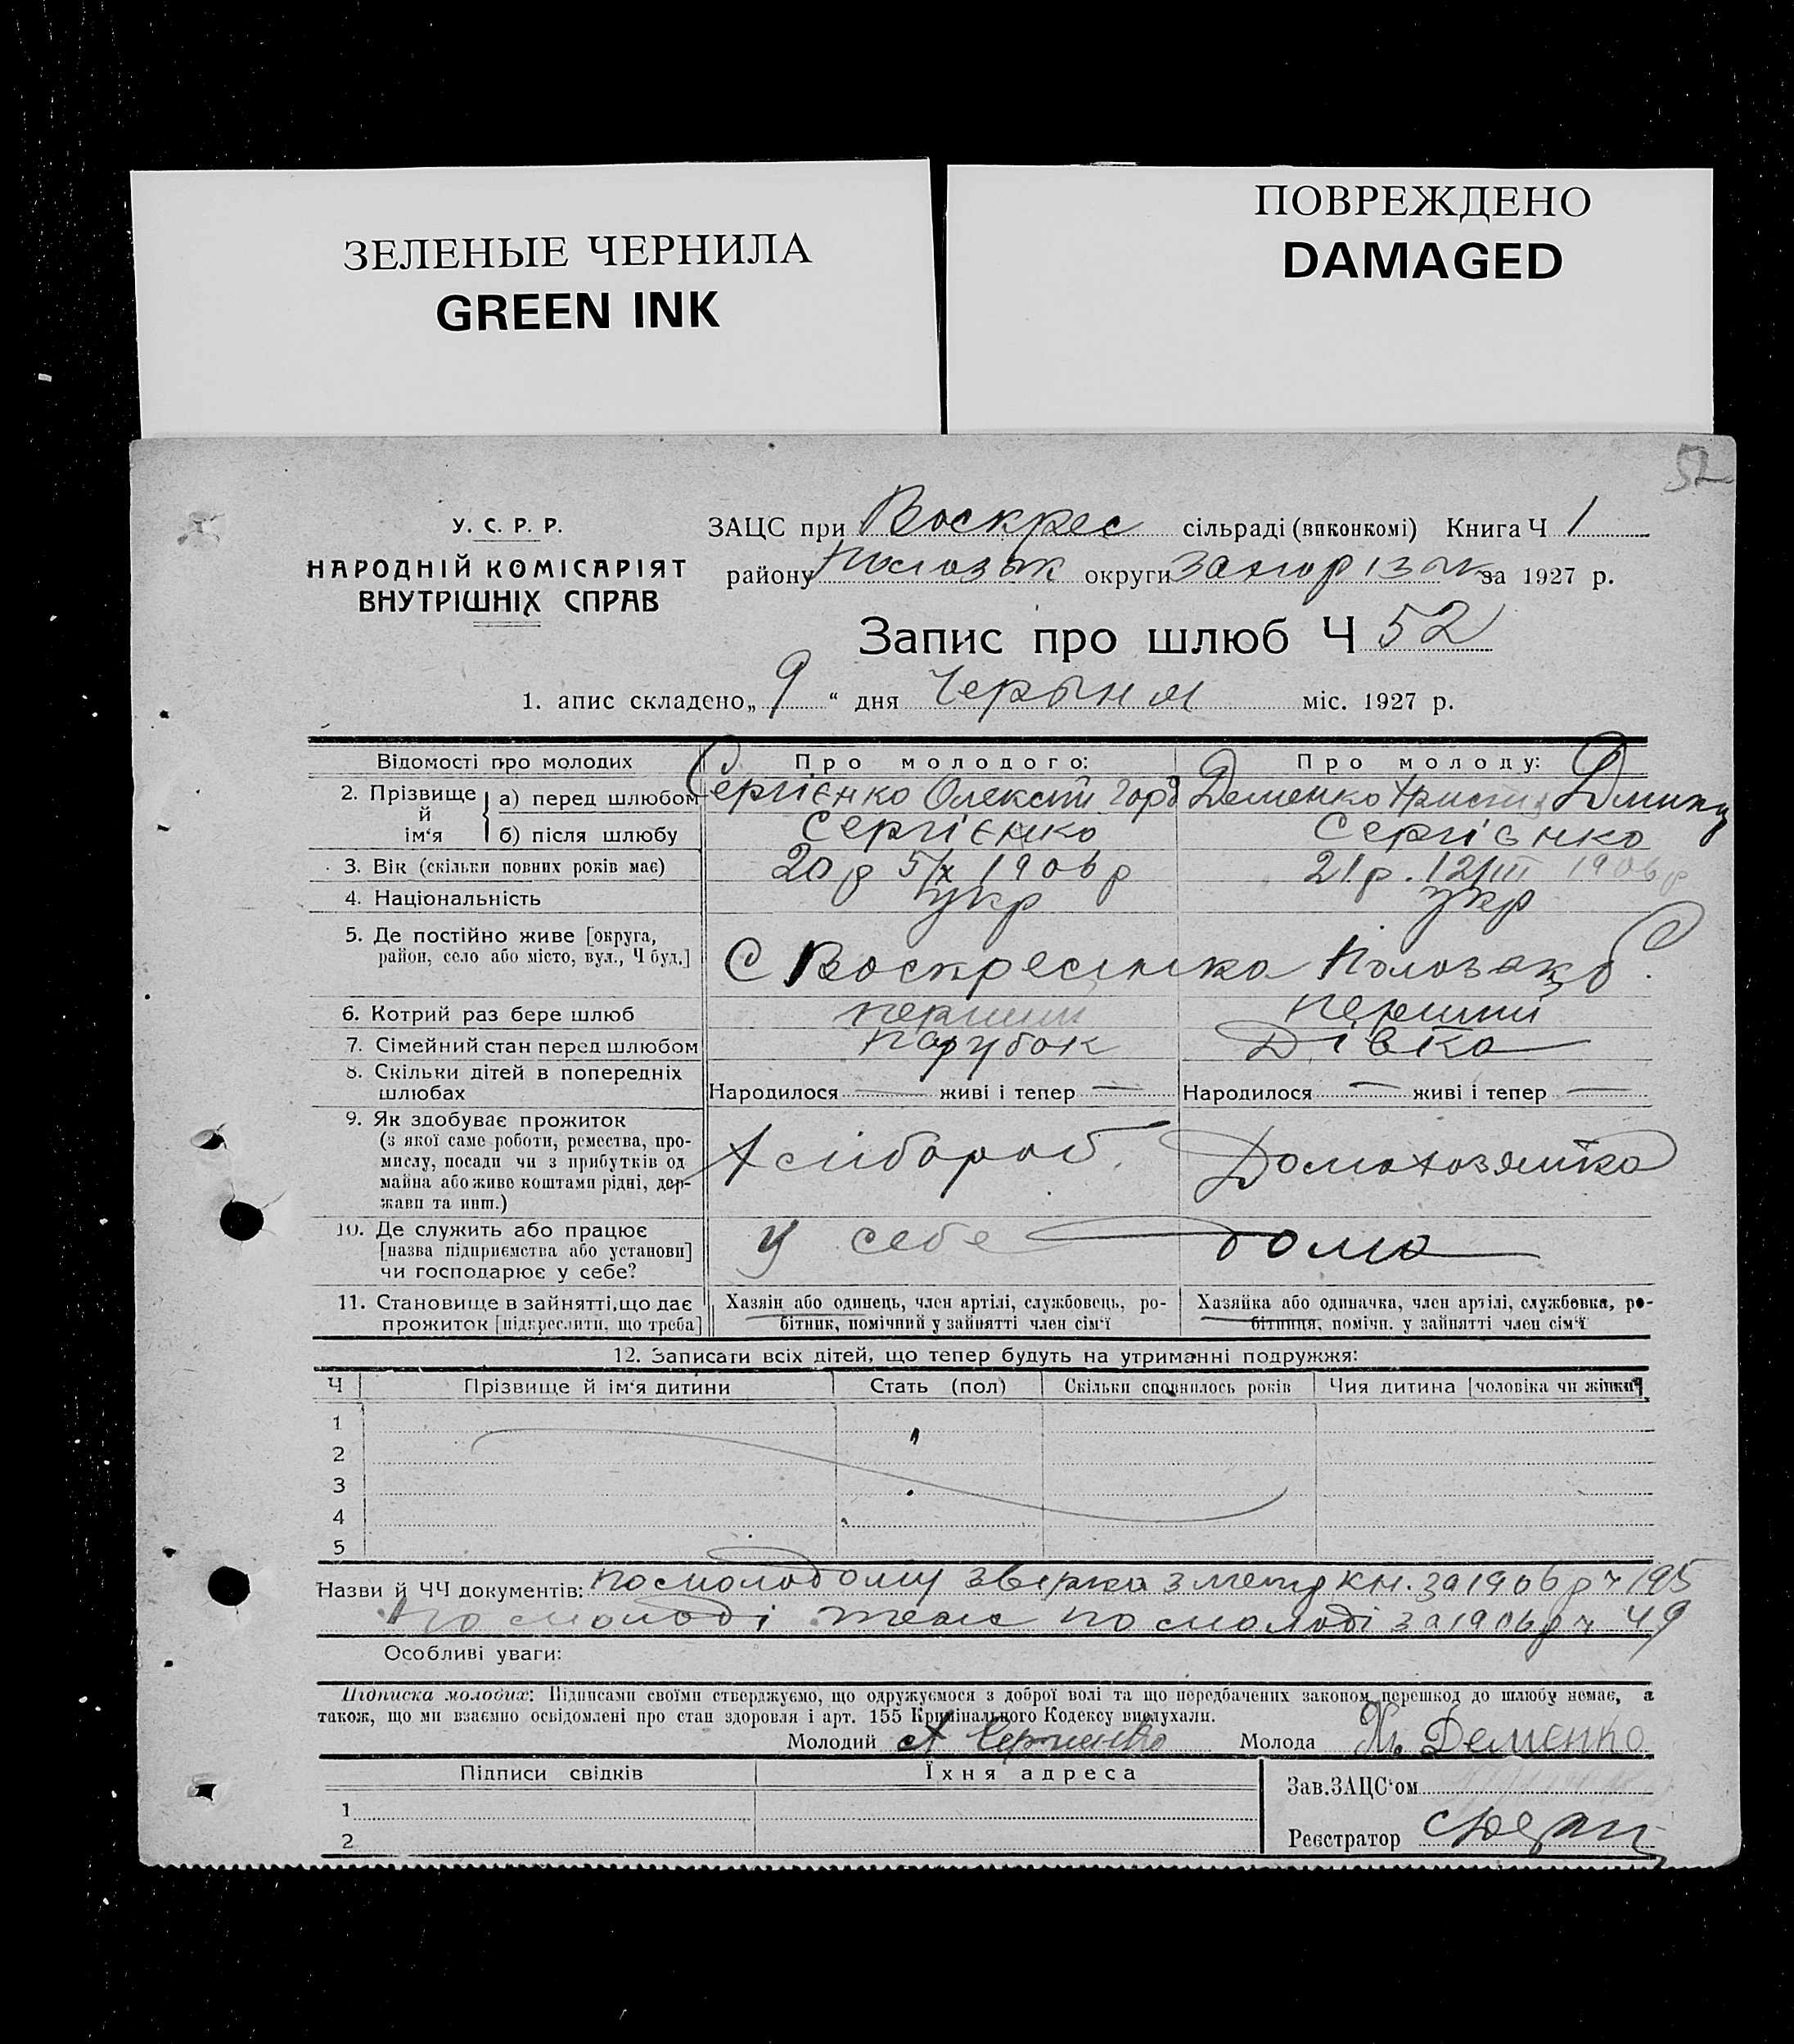 ЗЕЛЕНЫЕ ЧЕРНИЛА
GREEN INK
ПОВРЕЖДЕНО
DAMAGED
52
У. С. Р. Р.
НАРОДНІЙ КОМІСАРІЯТ
ВНУТРІШНІХ СПРАВ
ЗАЦС при Воскрес сільраді (виконкомі) Книга Ч 1
району округи за 1927 р.
Запис про шлюб Ч 52
1. апис складено „ 9 “ дня міс. 1927 р.
Відомості про молодих Про молодого: Про молоду:
2. Прізвище й ім‘я
а) перед шлюбом Сергієнко Олексій Горд Деменко Христя
б) після шлюбу Сергієнко Сергієнко
3. Вік (скільки повних років має) 20 р 5/X 1906 р 21 р. 12/III 1906 р
4. Національність укр укр
5. Де постійно живе [округа,
район, село або місто, вул., Ч буд.] С Воскресінка
6. Котрий раз бере шлюб перший перший
7. Сімейний стан перед шлюбом парубок Дівка
8. Скільки дітей в попередніх
шлюбах Народилося — живі і тепер — Народилося — живі і тепер —
9. Як здобуває прожиток
(з якої саме роботи, ремества, про-
мислу, посади чи з прибутків од
майна або живе коштами рідні, дер-
жави та инш.)
Хлібороб. Домохозяйка
10. Де служить або працює
[назва підприємства або установи]
чи господарює у себе?
у себе дома
11. Становище в зайнятті, що дає
прожиток [підкреслити, що треба]
Хазяїн або одинець, член артілі, службовець, ро-
бітник, помічний у зайнятті член сім‘ї
Хазяйка або одиначка, член артілі, службовка, ро-
бітниця, помічн. у зайнятті член сім‘ї
12. Записати всіх дітей, що тепер будуть на утриманні подружжя:
Ч Прізвище й ім‘я дитини Стать (пол) Скільки сповнилось років Чия дитина [чоловіка чи жінки]
1
2
3
4
5
Назви й ЧЧ документів: по молодому звірка з метр кн. за 1906 р ч 195
по молоді теж по молоді за 1906 р ч 49
Особливі уваги:
Підписка молодих: Підписами своїми стверджуємо, що одружуємося з доброї волі та що передбачених законом перешкод до шлюбу немає, а
також, що ми взаємно освідомлені про стан здоровля і арт. 155 Кримінального Кодексу вислухали.
Молодий А Молода Хр Деменко
Підписи свідків Їхня адреса
1
2
Зав.ЗАЦС‘ом
Реєстратор